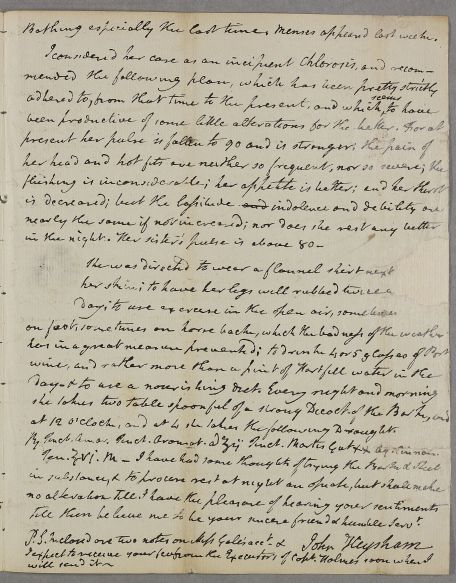 Bathing especially the last time; menses appeared last week.
I considered her case as an incipient Chlorosis, and recom-
mended the following plan, which has been pretty strictly
adhered to, from that time to the present, and which seems to have
been productive of some little alterations for the better. For at
present her pulse is fallen to 90 and is stronger; the pain of
her head and hot fits are neither so frequent, nor so severe; the
flushing is inconsiderable; her appetite is better; and her thirst
is decreased; but the lassitude and indolence and debility are
nearly the same if not increased; nor does she rest any better
in the night. Her sister's pulse is above 80 -
She was directed to wear a flannel shirt next
her skin; to have her legs well rubbed twice a
day; to use exercise in the open air, sometimes
on foot, sometimes on horse back, which the badness of the weather
has in a great measure prevented; to drink 4 or 5 glasses of Port
wine, and rather more than a pint of Hartfell water in the
day & to use a nourishing diet. Every night and morning
she takes two table spoonful of a strong Decoct. of the Bark, and
at 12 o'Clock, and at 4 she takes the following Draught.
Rx Tinct. Amar. Tinct. Aromat. Tinct. Martis
M - I have had some thoughts of trying the Bark & Steel
in substance, & to procure rest at night an opiate, but shall make
no alteration till I have the pleasure of hearing your sentiments
till then believe me to be your sincere friend & humble Servt.
John Heysham
P.S. Inclosed are two notes on
I expect to receive your few from the Executors of Captn. Holmes soon when I
will send it -